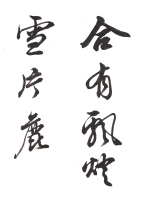 合有飘
雪片鹿